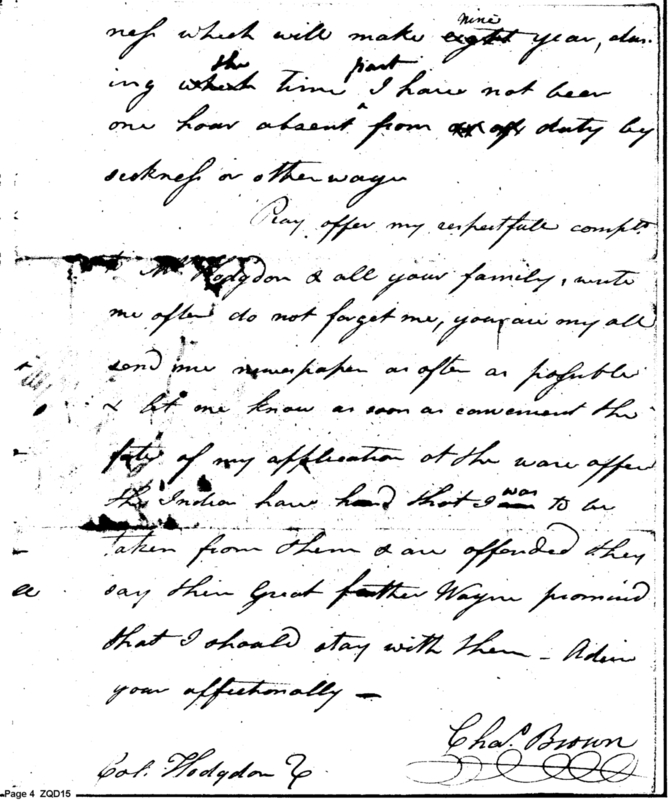 ness which will make eight nine year, dur-
ing which the time part I have not been
one hour absent from duty by
sickness or otherways
Pray offer my respectfull compts
Mrs Hodgdon & all your family, write
me often do not forget me, you are my all
send me newspaper as often as possible
& let me know as soon as convenient the
fate of my application at the ware office
the Indian have heard that I was to be
taken from them & are offended they
say their Great father Wayne promised
that I should stay with them - Adieu
your affectionally -
Chas. Brown
Col. Hodgdon
Page 4 ZQD15